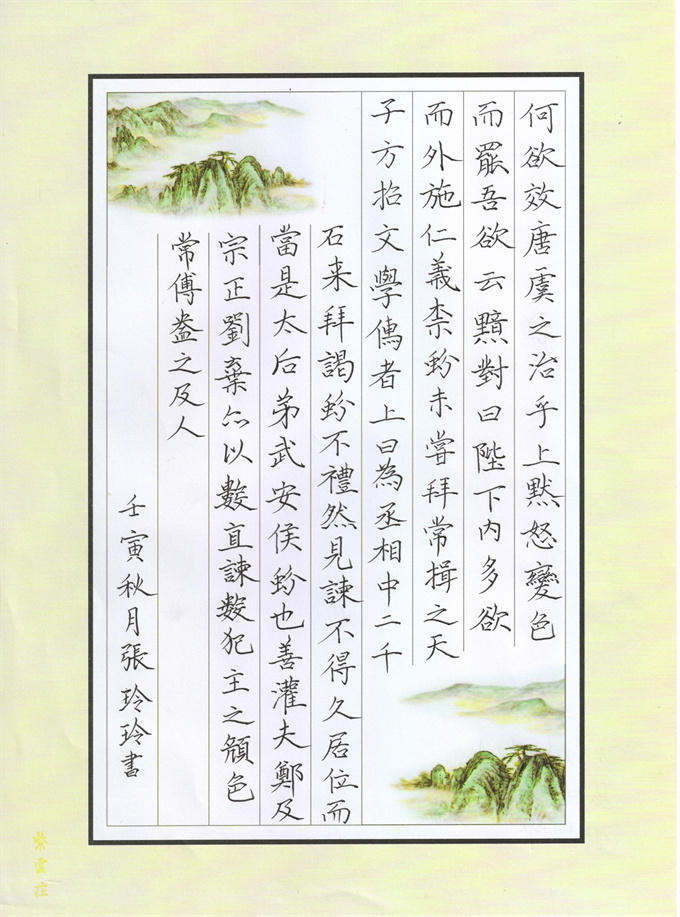 何欲效唐虞之治乎上黙怒變色
而罷吾欲云黯對曰陛下内多欲
而外施仁義柰蚡未嘗拜常揖之天
子方招文學傳者上曰為丞相中二千
石来拜謁蚡不禮然見諫不得久居位而
當是太后弟武安侯蚡也善灌夫鄭及
宗正劉棄亦以數直諫數犯主之顔色
常傅盎之及人
壬寅秋月張玲玲書
紫雲莊